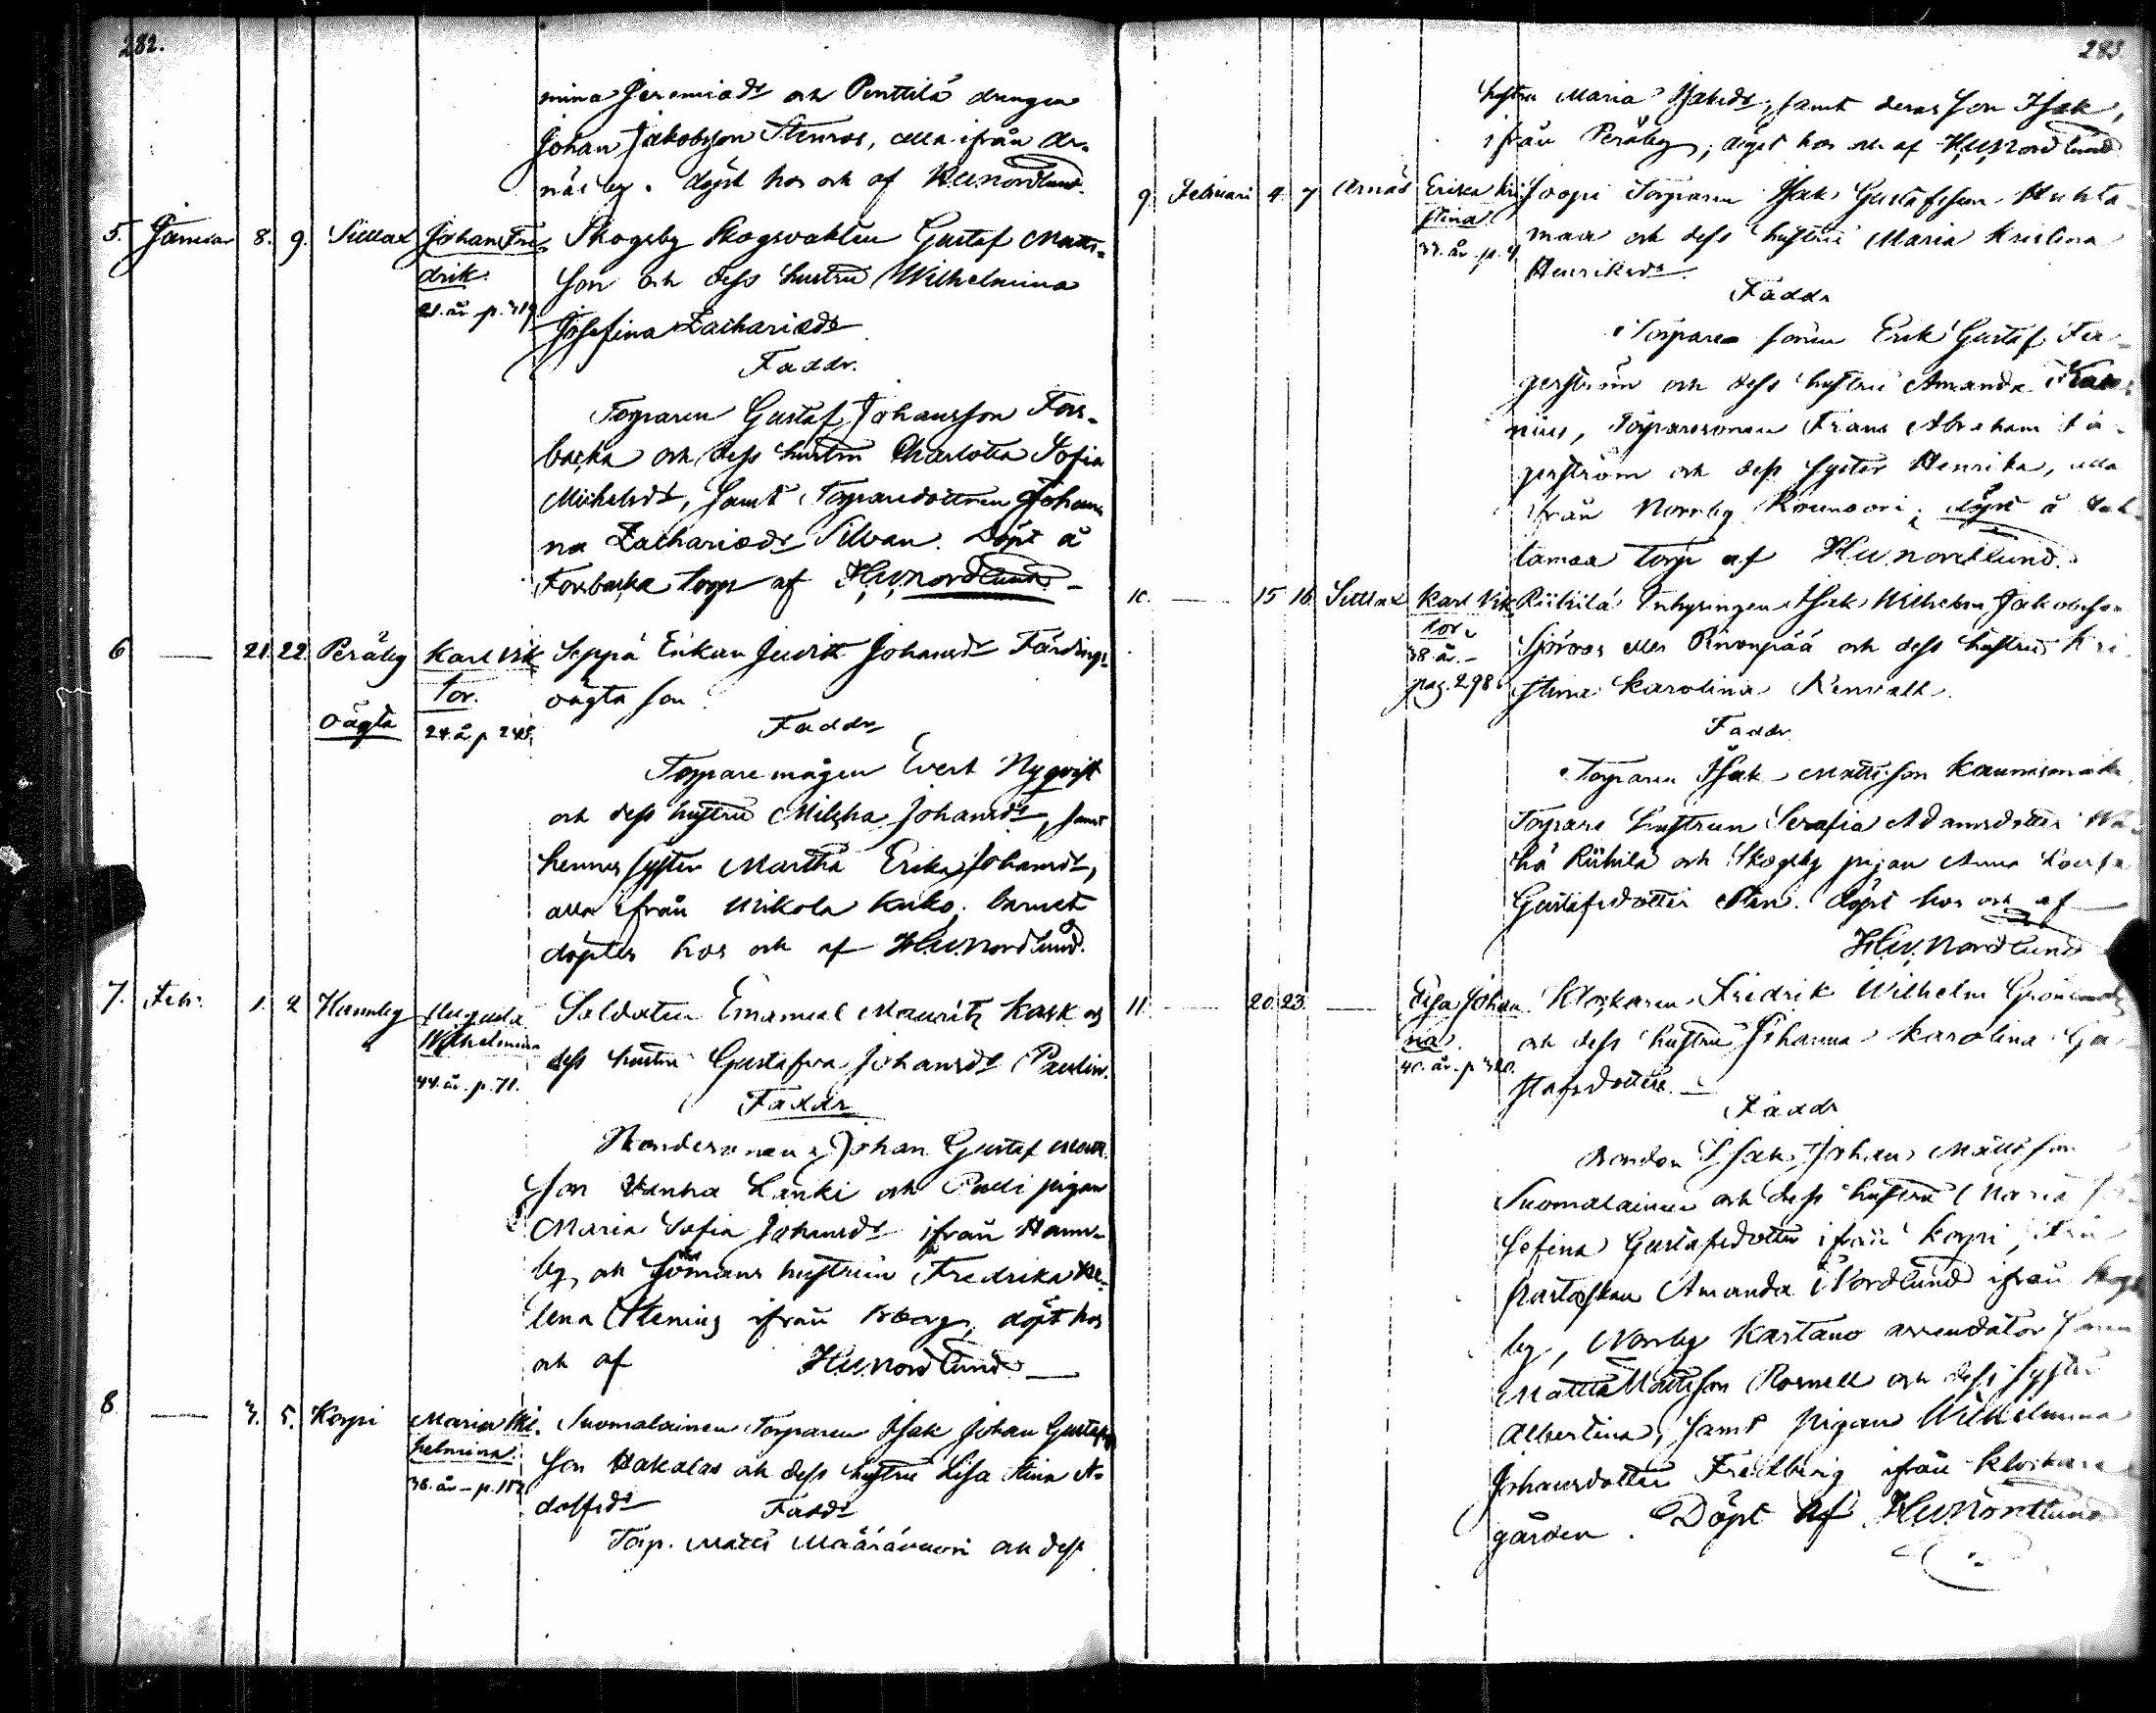 282.
mina Jeremiædr och Penttilä drängen
Johan Jakobsson Stenros, alla ifrån Ar-
näs by. döpt hos och af HWNordlund.
5. Januar 8. 9. Sittlax Johan Fre-
drik.
21. år p. 319
Skogsby Skogvakten Gustaf Matts-
son och dess hustru Wilhelmina
Josefina Zachariædr
Faddr.
Torparen Gustaf Johansson Fors-
backa och dess hustru Charlotta Sofia
Michelsdr, samt Torparedottren Johan-
na Zachariædr Silvan. Döpt å
Forsbacka torp af HWNordlund.
6 — 21. 22. Peräby Karl Vik-
tor.
oägta 24. år p. 245.
Seppä Enkan Judith Johansdr Färdings
oägta son
Faddr
Torpare mågen Evert Nyqvist
och dess hustru Milkha Johansdr, samt
hennes syster Martha Erika Johansdr,
alla ifrån Mikola Kuko; barnet
döptes hos och af HWNordlund.
7. Febr. 1. 2 Hamnby Augusta
Wilhelmina
44. år. p. 71.
Soldaten Emanuel Mauritz Kask och
dess hustru Gustafva Johansdr Paulin.
Faddr
Bondesonen Johan Gustaf Matts-
son Vanha Lanki och Pulli pigan
Maria Sofia Johansdr ifrån Hamn-
by, och Sjömans hustrun Fredrika He-
lena Stenius ifrån döpt hos
och af HWNordlund —
8. — 3. 5. Korpi Maria Wil-
helmina.
36. år – p. 152
Suomalainen Torparen Isak Johan Gustafs-
son Hakalax och dess hustru Lisa Stina A-
dolfsdr Faddr
Torp. Matts Määrävuori och dess
283.
hustru Maria Isaksdr, samt deras son Isak,
ifrån Peräby; döpt hos och af HWNordlund
9. Februari 4. 7 Arnäs Erika Kri-
stina.
37. år. p. 9
Joopi Torparen Isak Gustafsson Huhta-
maa och dess hustru Maria Kristina
Henriksdr.
Faddr
Torpare sonen Erik Gustaf Fa-
gerström och dess hustru Amanda
nius, Torparesonen Frans Abraham Fa-
gerström och dess syster Henrika, alla
ifrån Norrby Kounoori; döpt å Huh-
tamaa torp af HWNordlund.
10. — 15 16. Sittlax Karl Vik-
tor.
38. år. –
pag. 298.
Riihilä Inhysingen Isak Wilhelm Jakobsson
Sjöroos eller Rivonpää och dess hustru Kri-
stina Karolina Renvall.
Faddr
Torparen Isak Mattsson Kaunismäki
Torpare hustrun Serafia Adamsdotter Wä-
hä Riihilä och Skogsby pigan Anna Lovisa
Gustafsdotter Sten. döpt hos och af —
HWNordlund
11. — 20. 23. — Elsa Johan-
na.
40. år. p. 320.
Klockaren Fredrik Wilhelm Grönlund
och dess hustru Johanna Karolina Gu-
stafsdotter. —
Faddr
Bonden Isak Johan Mattsson
Suomalainen och dess hustru Maria Jo-
sefina Gustafsdotter ifrån Korpi,
Amanda Nordlund ifrån Skogs-
by, Norrby Kartano arrendator sonen
Matts Mattsson Rosnell och dess syster
Albertina, samt pigan Wilhelmina
Johansdotter Fredberg ifrån Klockare
gården. Döpt af HWNordlund